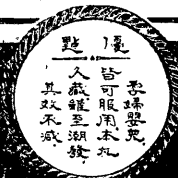 優點
男婦嬰兒。
皆可服用。本札
久藏雖至潮發。
其效不減。